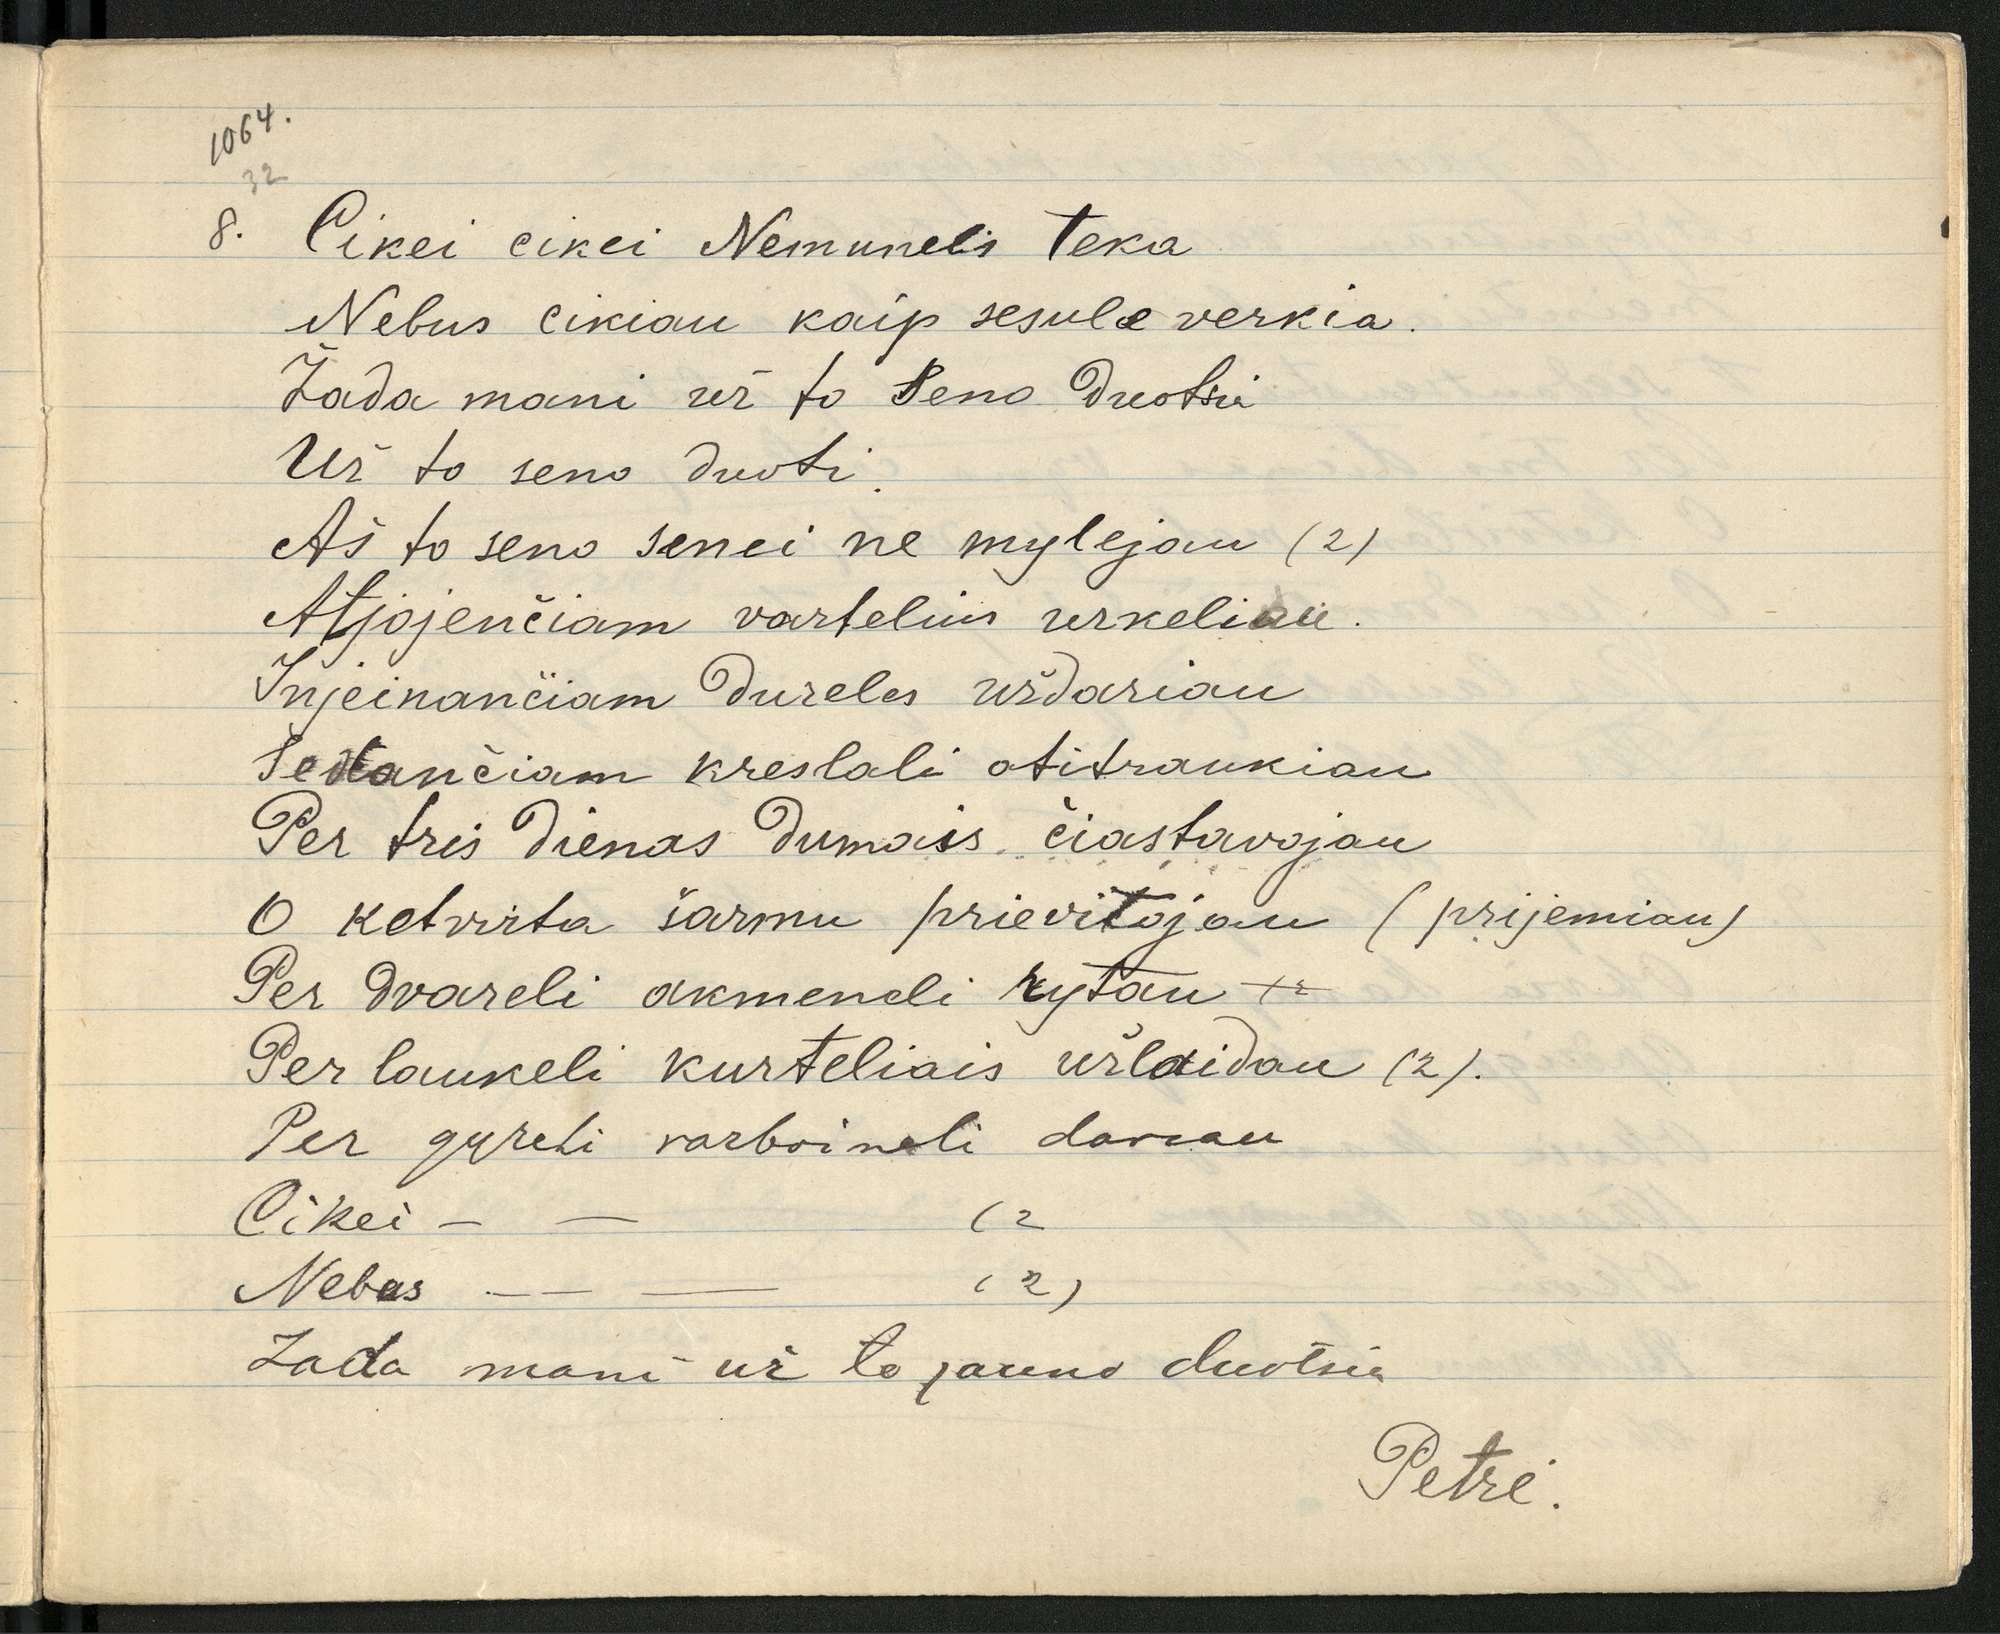 1064.
32
8. Cikei cikei Nemunelis teka
Nebus cikiau kaip sesule verkia.
Žada mani už to seno duotsia
Už to seno duoti.
Aš to seno senei ne mylejau (2)
Atjojenčiam vartelius užkeliau.
Injeinančiam dureles uždariau
Sedančiam kreslali atitraukiau
Per tris dienas dumais čiastavojau
O ketvirta šarmu prievitojau (prijemiau)
Per dvareli akmeneli rytau
Per laukeli kurteliais užlaidau (2).
Per gyreli varboineli daviau
Cikei – — (2
Nebus — — — (2)
Zada mani už to jauno duotsia
Petrė.